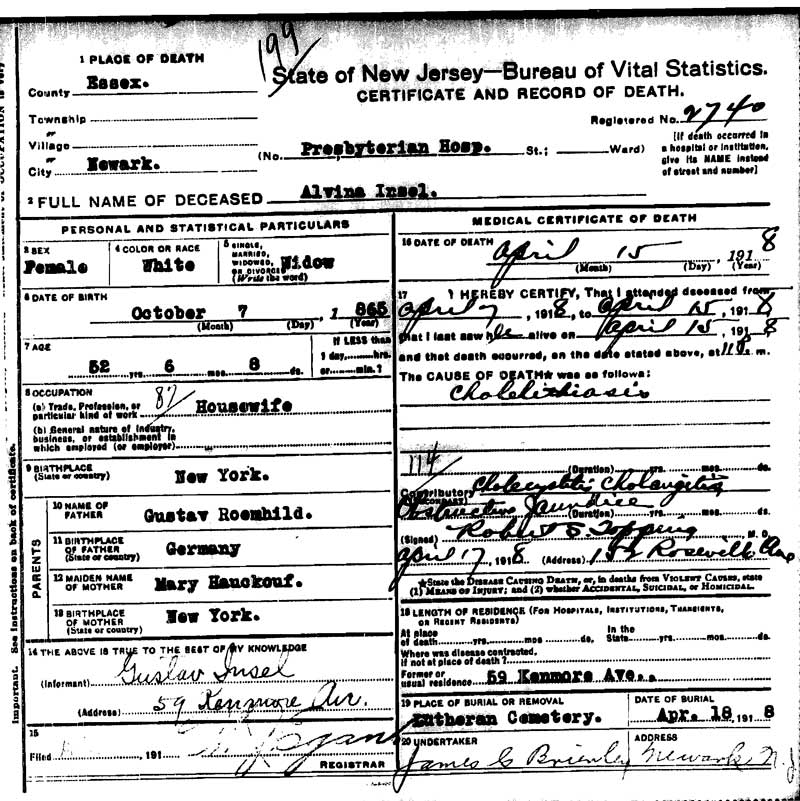 199
1 PLACE OF DEATH
County Essex.
State of New Jersey—Bureau of Vital Statistics.
CERTIFICATE AND RECORD OF DEATH.
Township
or
Village
or
City Newark.
Registered No. 2740
(No. Presbyterian Hosp. St.; Ward)
[If death occurred in
a hospital or institution,
give its NAME instead
of street and number]
2 FULL NAME OF DECEASED Alvina Insel.
PERSONAL AND STATISTICAL PARTICULARS
3 SEX
Female
4 COLOR OR RACE
White
5 SINGLE,
MARRIED,
WIDOWED,
OR DIVORCED
(Write the word)
Widow
6 DATE OF BIRTH
October 7, 1865
(Month) (Day) (Year)
7 AGE
52 yrs. 6 mos. 8 ds.
If LESS than
1 day,......hrs.
or......min.?
8 OCCUPATION
(a) Trade, Profession, or
particular kind of work Housewife
(b) General nature of industry,
business, or establishment in
which employed (or employer)
9 BIRTHPLACE
(State or country) New York.
PARENTS
10 NAME OF
FATHER Gustav Roemhild.
11 BIRTHPLACE
OF FATHER
(State or country) Germany
12 MAIDEN NAME
OF MOTHER Mary Hauckouf.
13 BIRTHPLACE
OF MOTHER
(State or country) New York.
14 THE ABOVE IS TRUE TO THE BEST OF MY KNOWLEDGE
(Informant) Gustav Insel
(Address) 59 Kenmore Av.
15
Filed , 191
REGISTRAR
MEDICAL CERTIFICATE OF DEATH
16 DATE OF DEATH
April 15, 1918
(Month) (Day) (Year)
17 I HEREBY CERTIFY, That I attended deceased from
April 7, 1918, to April 15, 1918,
that I last saw her alive on April 15, 1918
and that death occurred, on the date stated above, at m.
The CAUSE OF DEATH★ was as follows:
Cholelithiasis
114
(Duration) yrs. mos. ds.
Contributory Cholecystitis Cholangitis
(SECONDARY)
Obstructive Jaundice (Duration) yrs. mos. ds.
(Signed) Robert S. Topping M. D.
April 17, 1918 (Address) 152 Roseville Ave
★State the DISEASE CAUSING DEATH, or, in deaths from VIOLENT CAUSES, state
(1) MEANS OF INJURY; and (2) whether ACCIDENTAL, SUICIDAL, or HOMICIDAL.
18 LENGTH OF RESIDENCE (FOR HOSPITALS, INSTITUTIONS, TRANSIENTS,
OR RECENT RESIDENTS)
At place
of death......yrs......mos......ds.
In the
State......yrs......mos......ds.
Where was disease contracted,
if not at place of death?
Former or
usual residence 59 Kenmore Ave..
19 PLACE OF BURIAL OR REMOVAL
Lutheran Cemetery.
DATE OF BURIAL
Apr. 18, 1918
20 UNDERTAKER
James C Brierley
ADDRESS
Newark N.J
Important. See instructions on back of certificate.